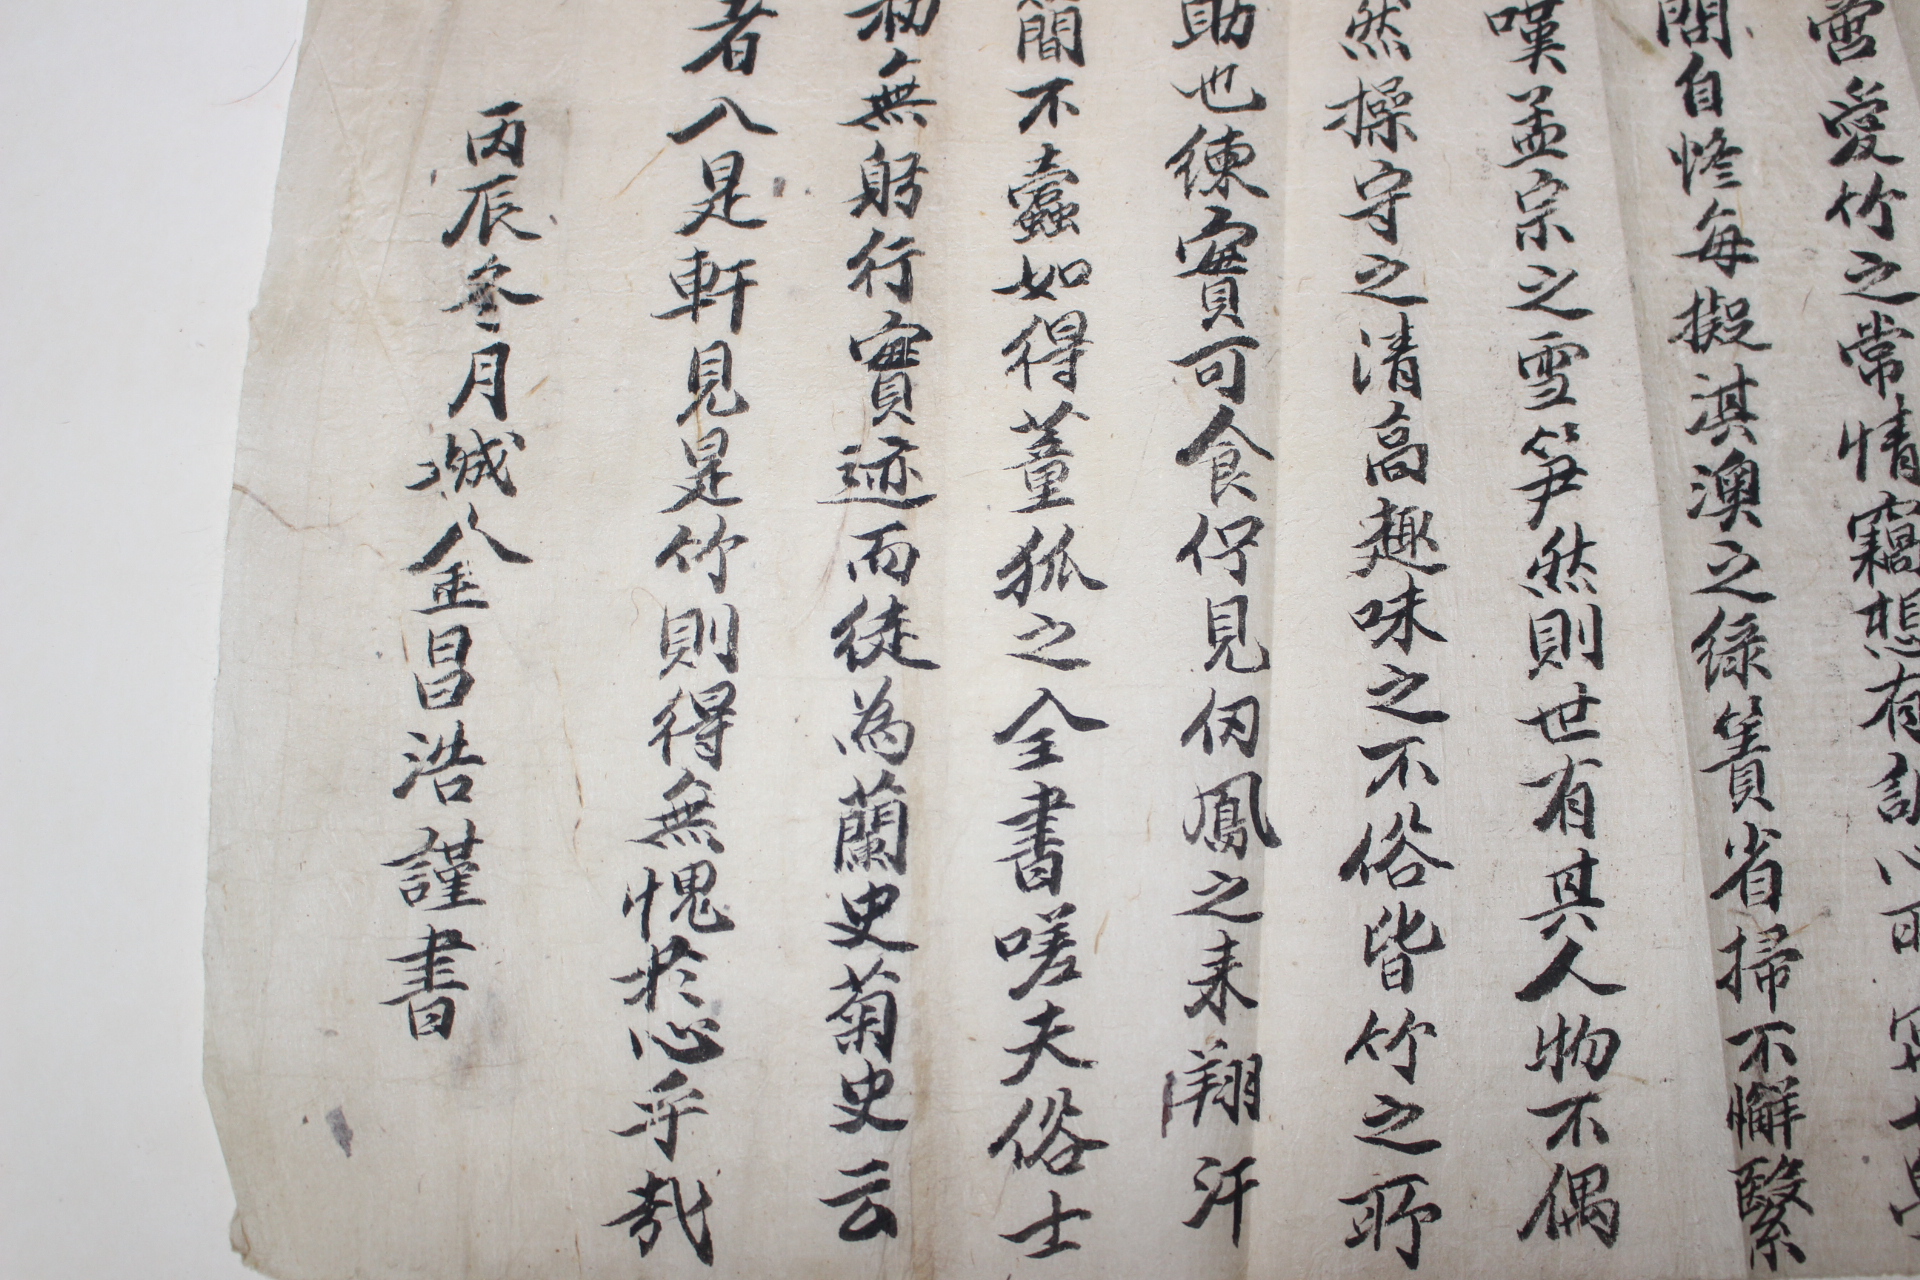 愛竹之常情竊想有
問自修每擬淇澳之綠簀省掃不懈繄
嘆孟宗之雪笋然則世有其人物不偶
然操守之清高趣味之不俗皆竹之所
助也練實可食佇見仞鳳之来翔汗
簡不蠹如得董狐之全書嗟夫俗士
初無躬行實迹而徒為蘭史菊史云
者入是軒見是竹則得無愧扵心乎哉
丙辰冬月 金昌浩謹書